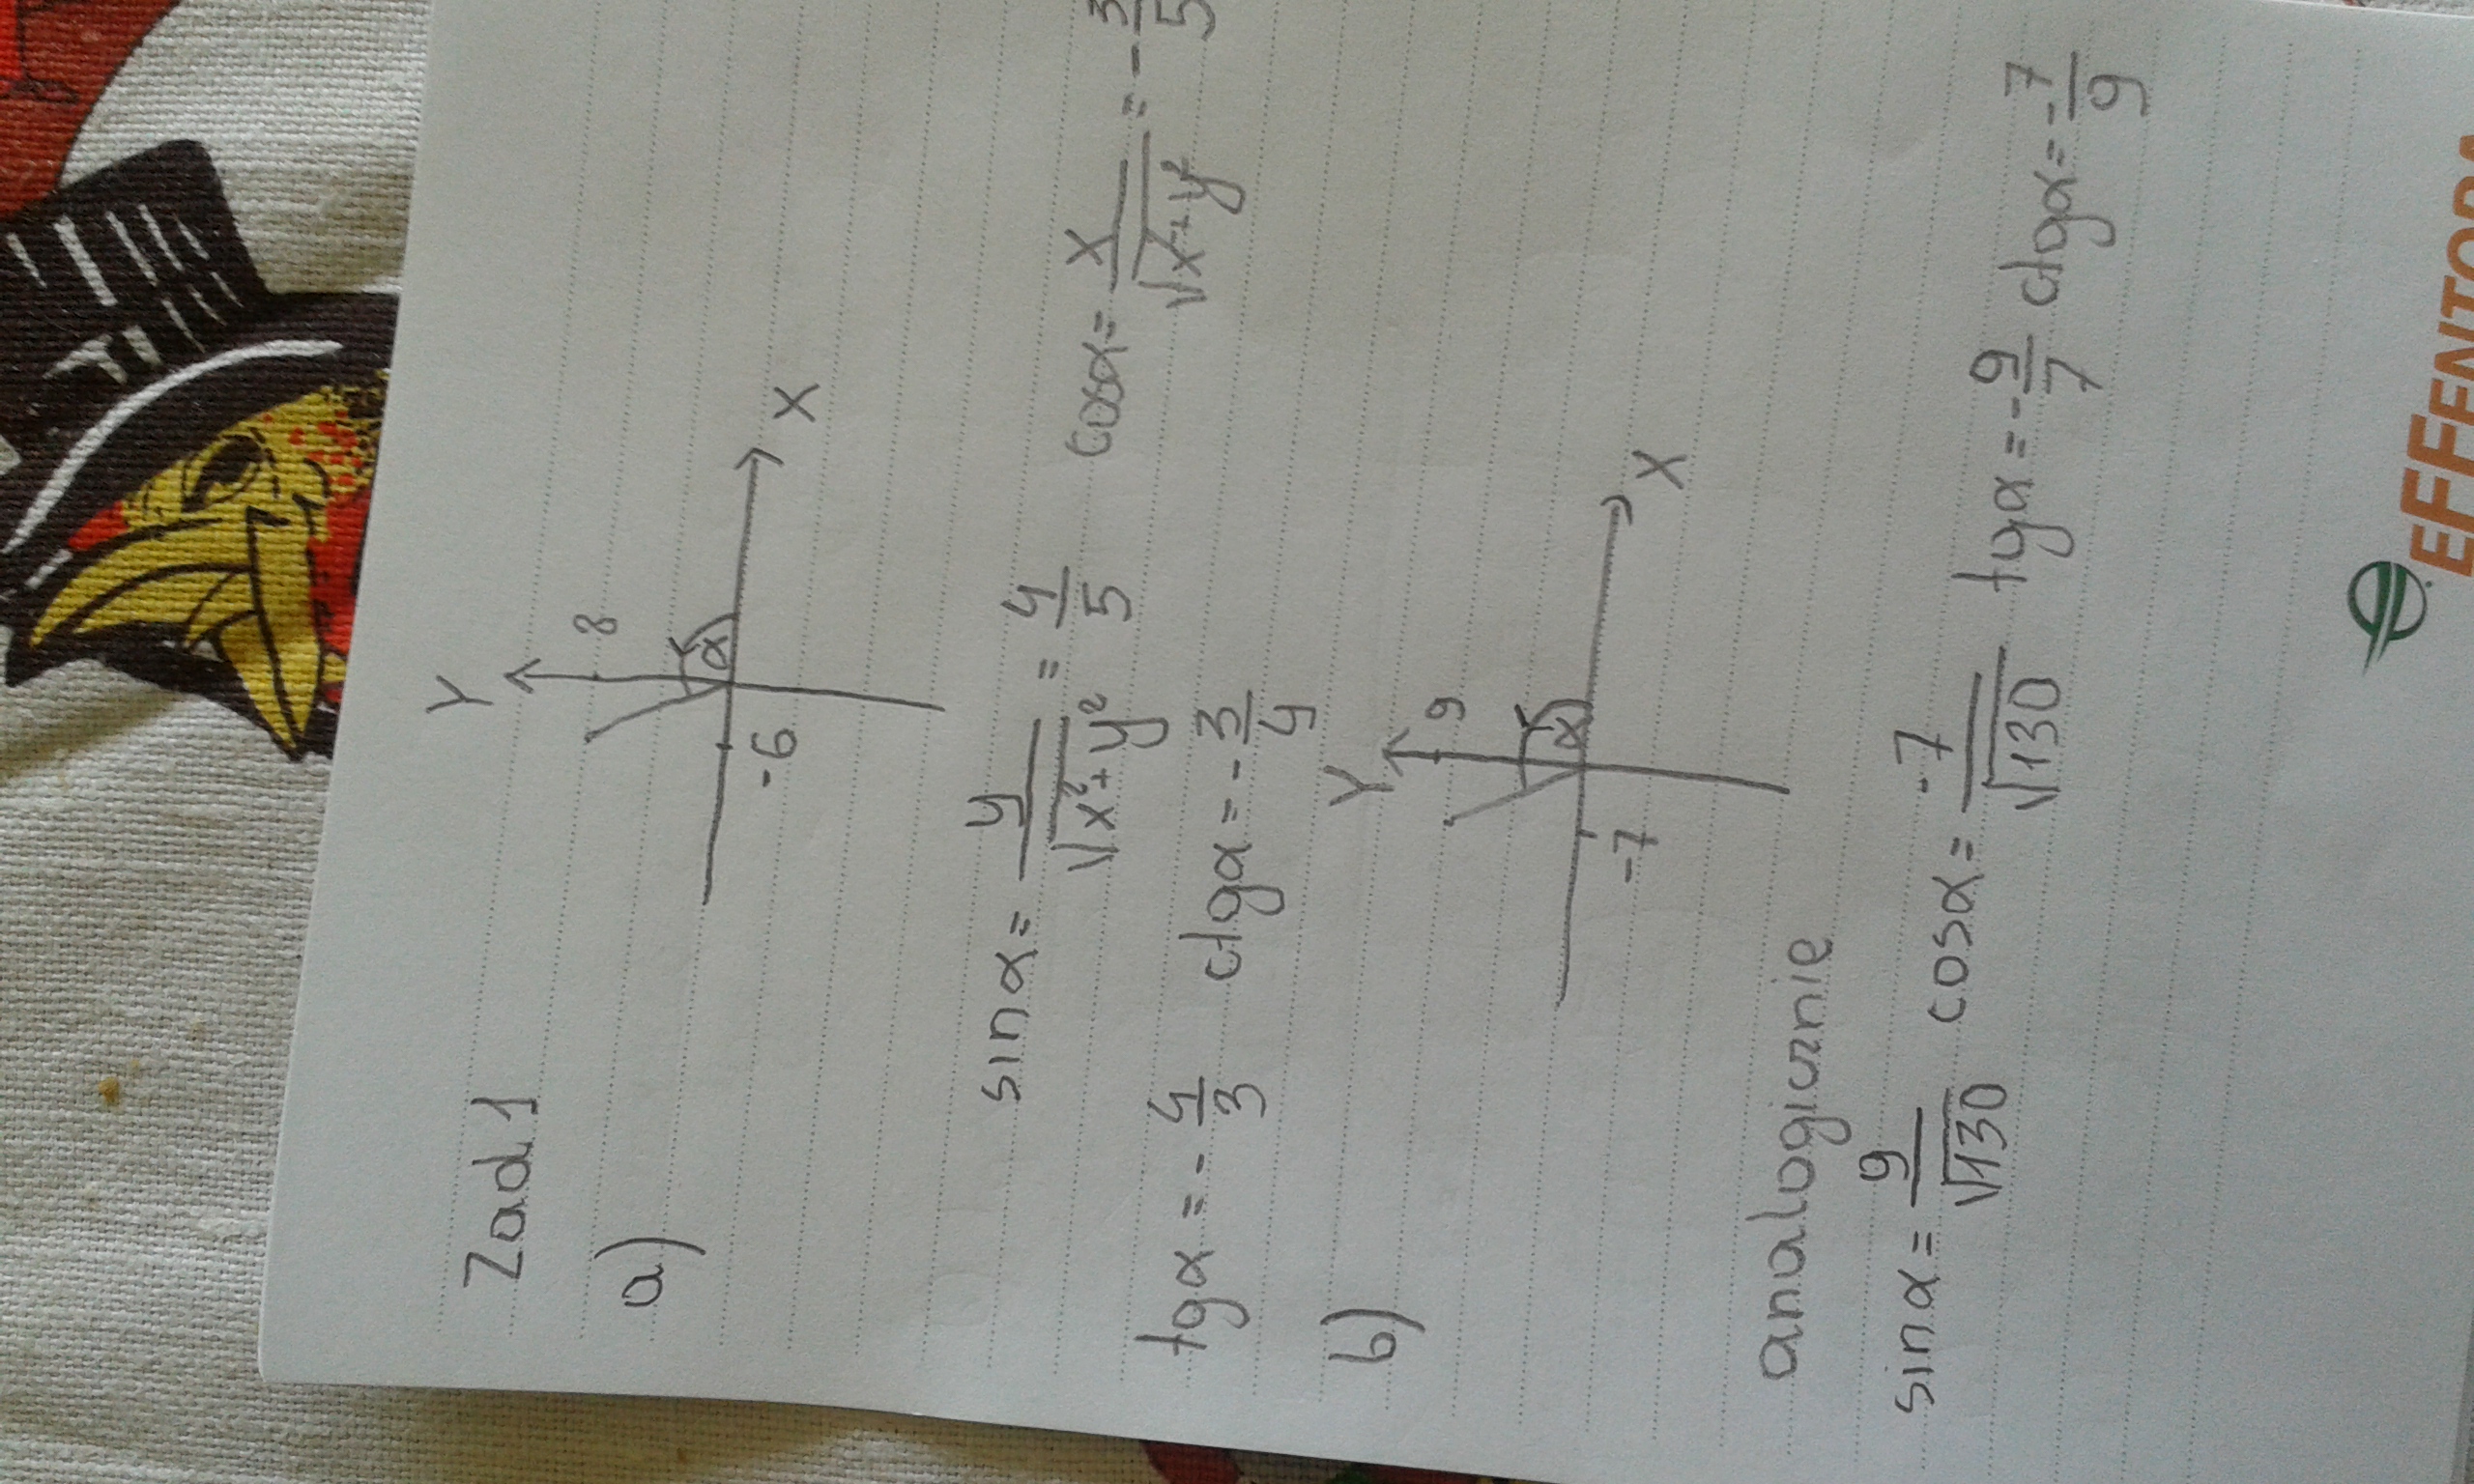 Zad 1
a)
Y
8
α
X
-6
sinα = y/√(x²+y²) = 4/5 cosα = x/√(x²+y²) = -3/5
tgα = -4/3 ctgα = -3/4
b)
Y
9
α
X
-7
analogicznie
sinα = 9/√130 cosα = -7/√130 tgα = -9/7 ctgα = -7/9
EFFENTORA